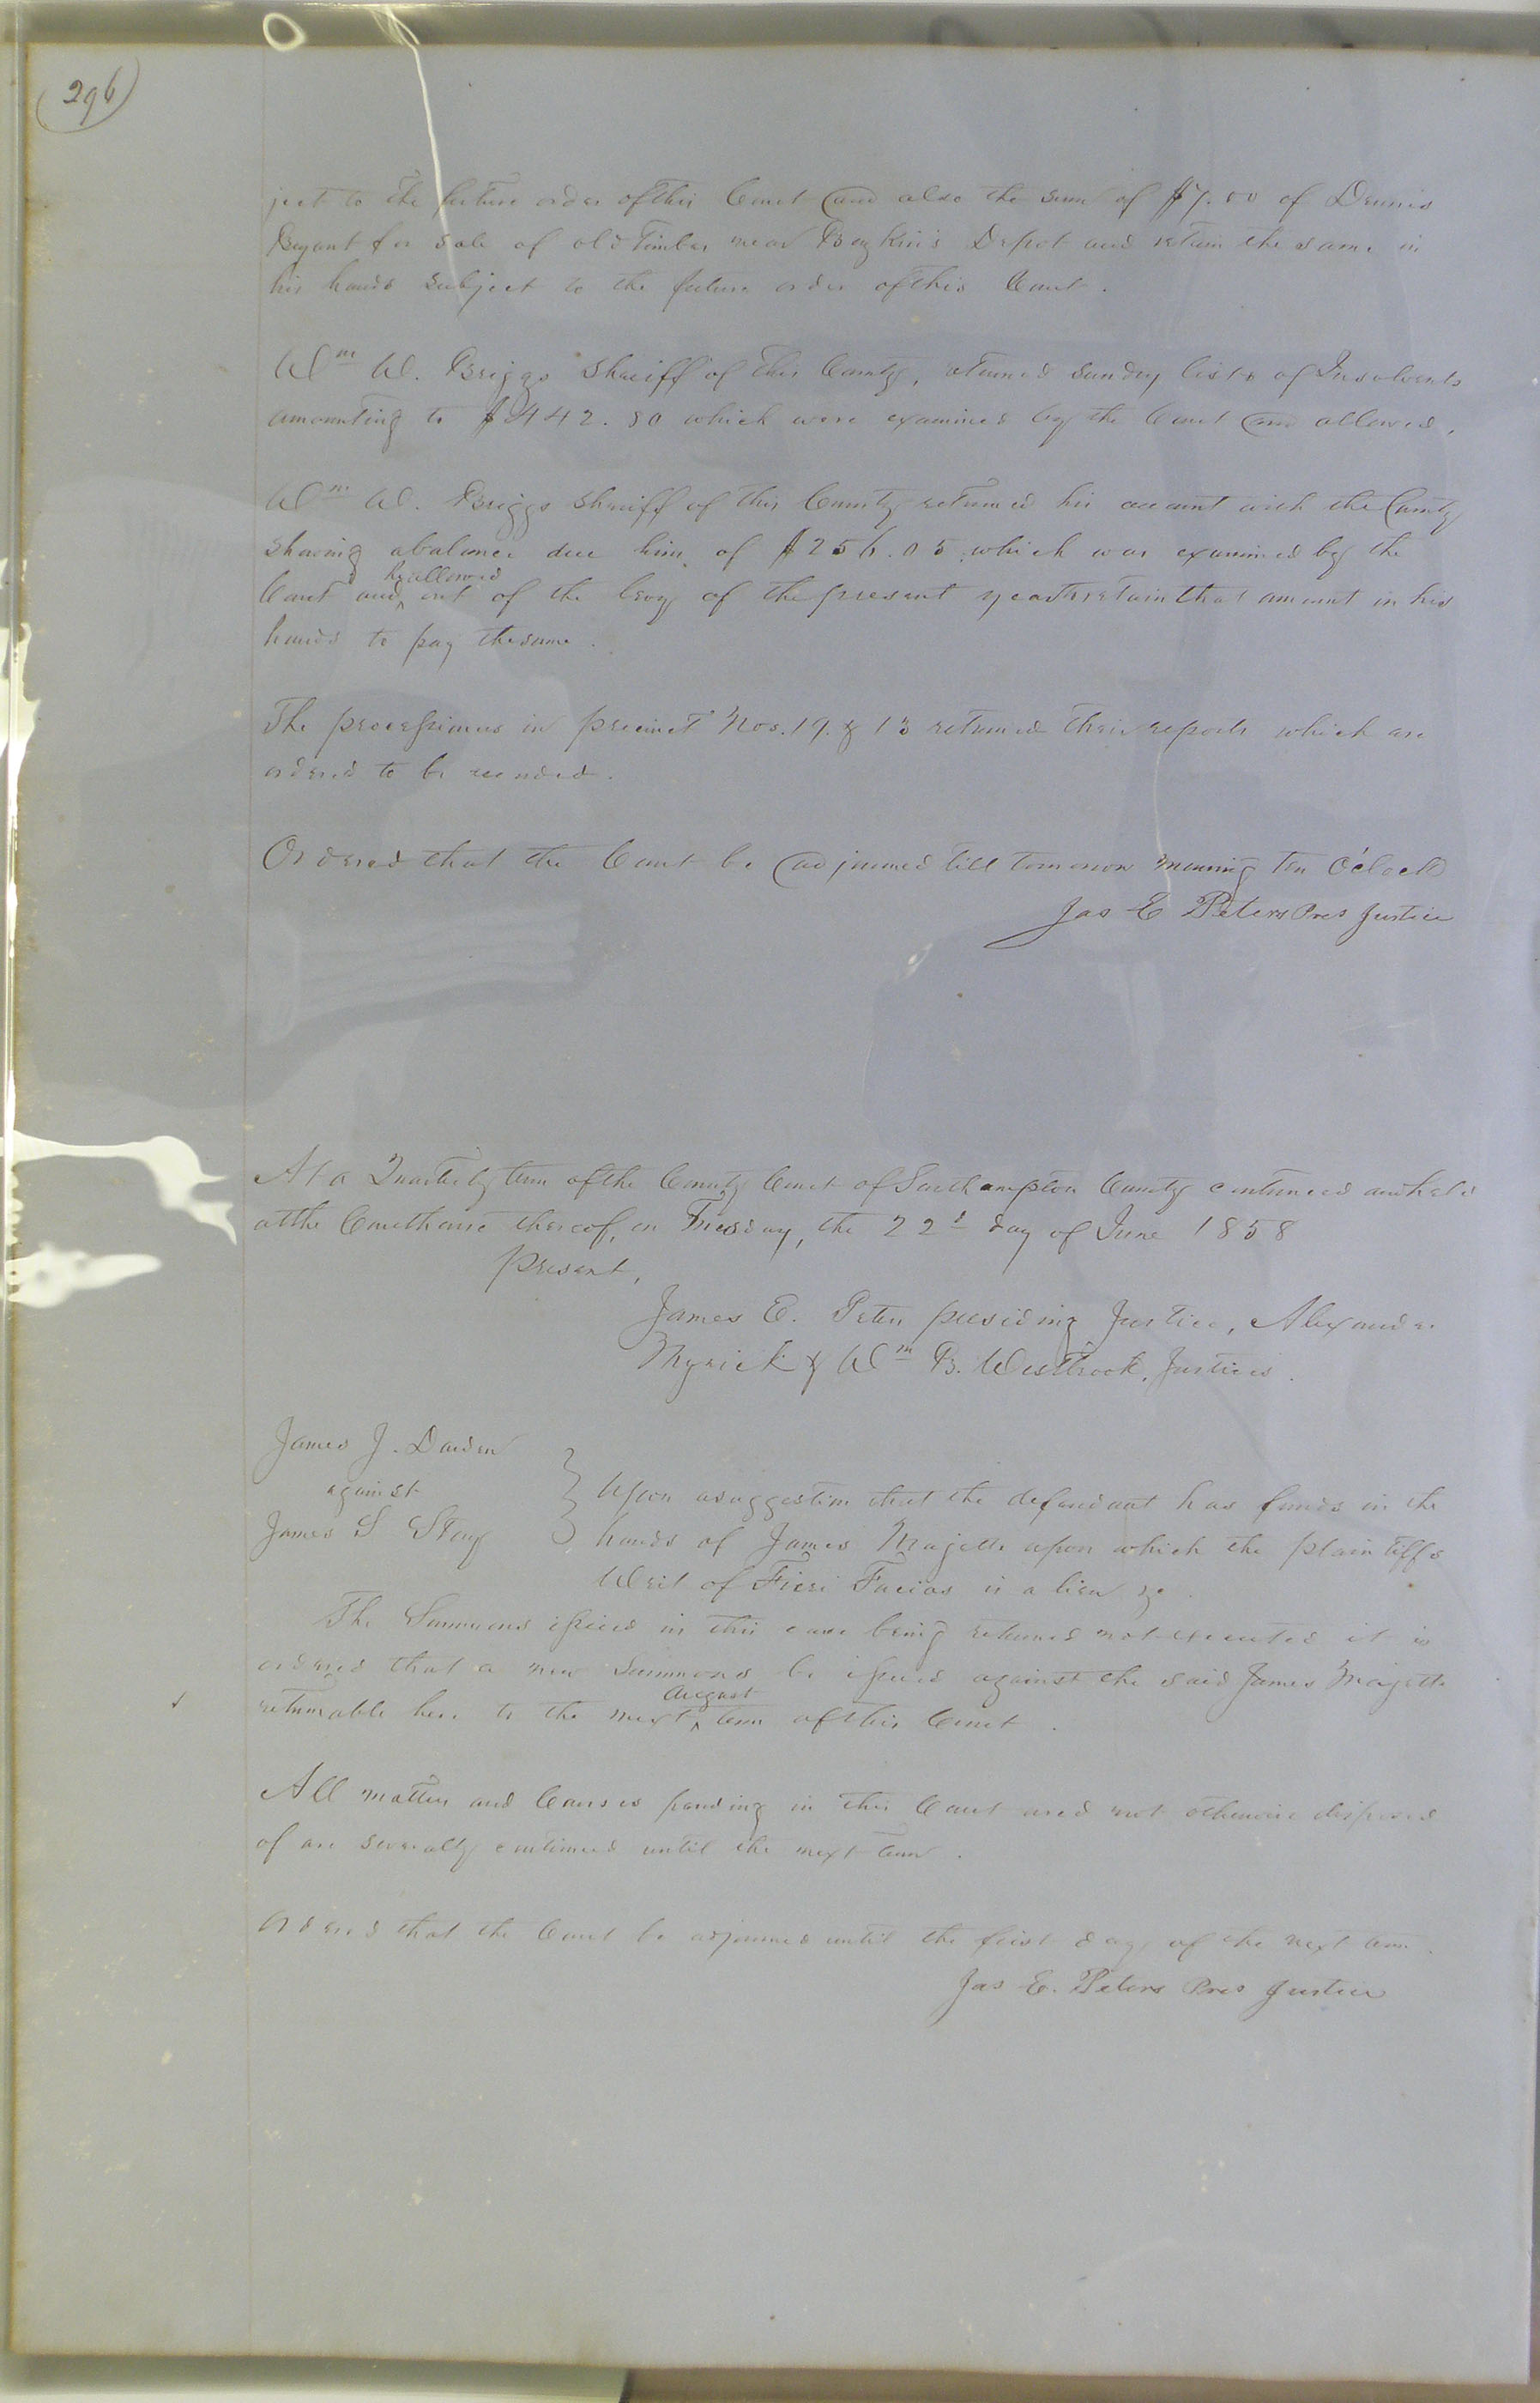 296
ject to the future order of this Court and also the sum of $7.00 of Dennis
Bryant for sale of old Timber near Boykin's Depot and retain the same in
his hands subject to the future order of this Court.
Wm W. Briggs Sheriff of this County, returned sundry lists of Insolvents
amounting to $442.80 which were examined by the Court and allowed.
Wm W. Briggs Sheriff of this County returned his account with the County
showing a balance due him of $256.05 which was examined by the
Court and ^ allowed out of the levy of the present year to retain that amount in his
hands to pay the same.
The processioners in precinct Nos. 19 & 13 returned their reports which are
ordered to be recorded.
Ordered that the Court be adjourned till tomorrow morning ten O'clock
Jas E Peters Pres Justice
At a Quarterly term of the County Court of Southampton County continued and held
at the Courthouse thereof, on Tuesday, the 22d day of June 1858
Present,
James E. Peters presiding Justice, Alexander
Myrick & Wm B. Westbrook, Justices.
James J. Darden
against
James S Stay
Upon a suggestion that the defendant has funds in the
hands of James Majette upon which the plaintiffs
Writ of Fieri Facias is a lien &c.
The Summons issued in this case being returned not executed it is
ordered that a new Summons be issued against the said James Majette
returnable here to the next ^ August term of this Court.
All matters and Causes pending in this Court and not otherwise disposed
of are severally continued until the next term.
Ordered that the Court be adjourned until the first day of the next term.
Jas E. Peters Pres Justice